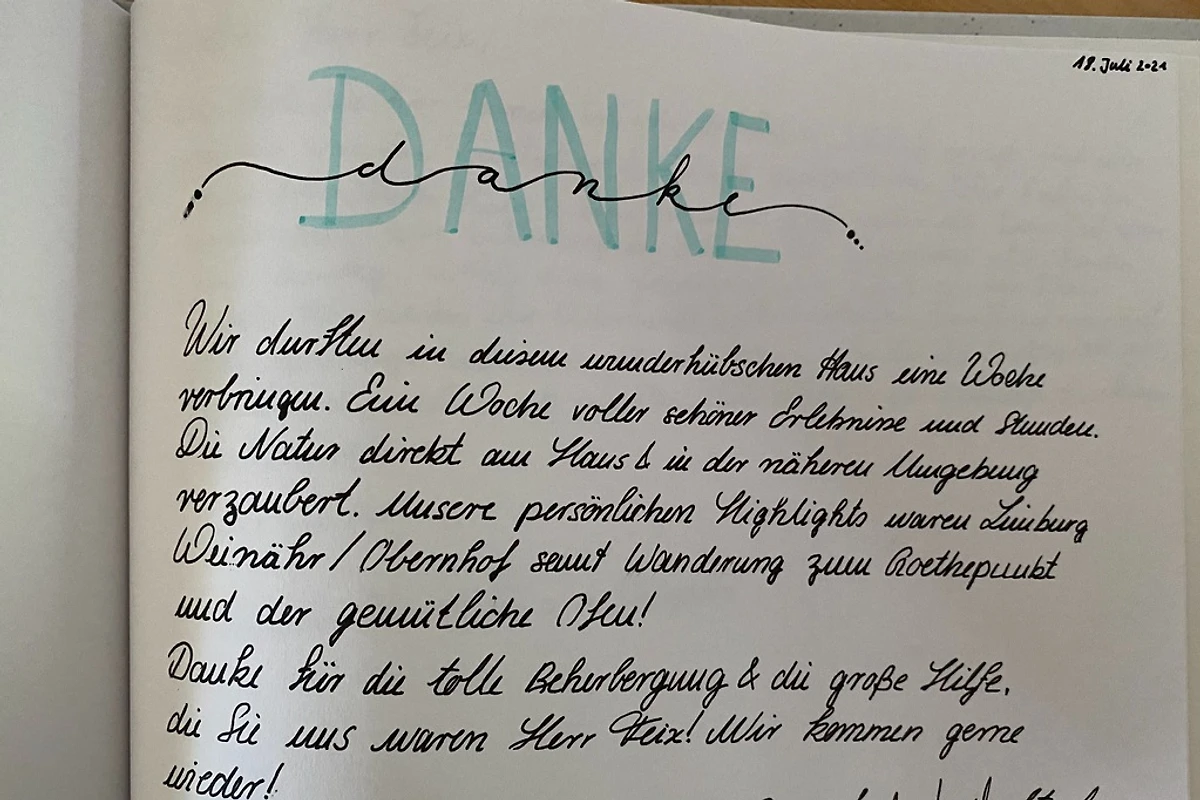 18. Juli 2021
DANKE
danke
Wir durften in diesem wunderhübschen Haus eine Woche
verbringen. Eine Woche voller schöner Erlebnisse und Stunden.
Die Natur direkt am Haus & in der näheren Umgebung
verzaubert. Unsere persönlichen Highlights waren Limburg
Weinähr / Obernhof samt Wanderung zum Goethepunkt
und der gemütliche Ofen!
Danke für die tolle Beherbergung & die große Hilfe,
die Sie uns waren Herr Feix! Wir kommen gerne
wieder!